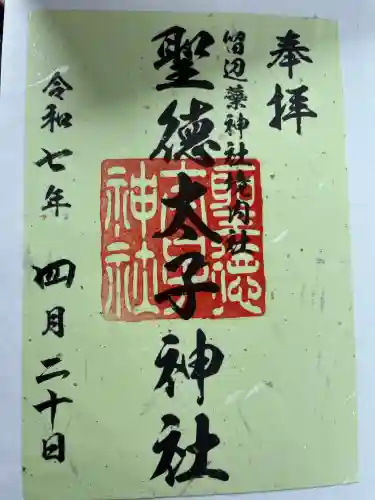 奉拝
笛辺薬神社境内社
聖徳太子神社
聖徳
太子
神社
令和七年 四月二十日